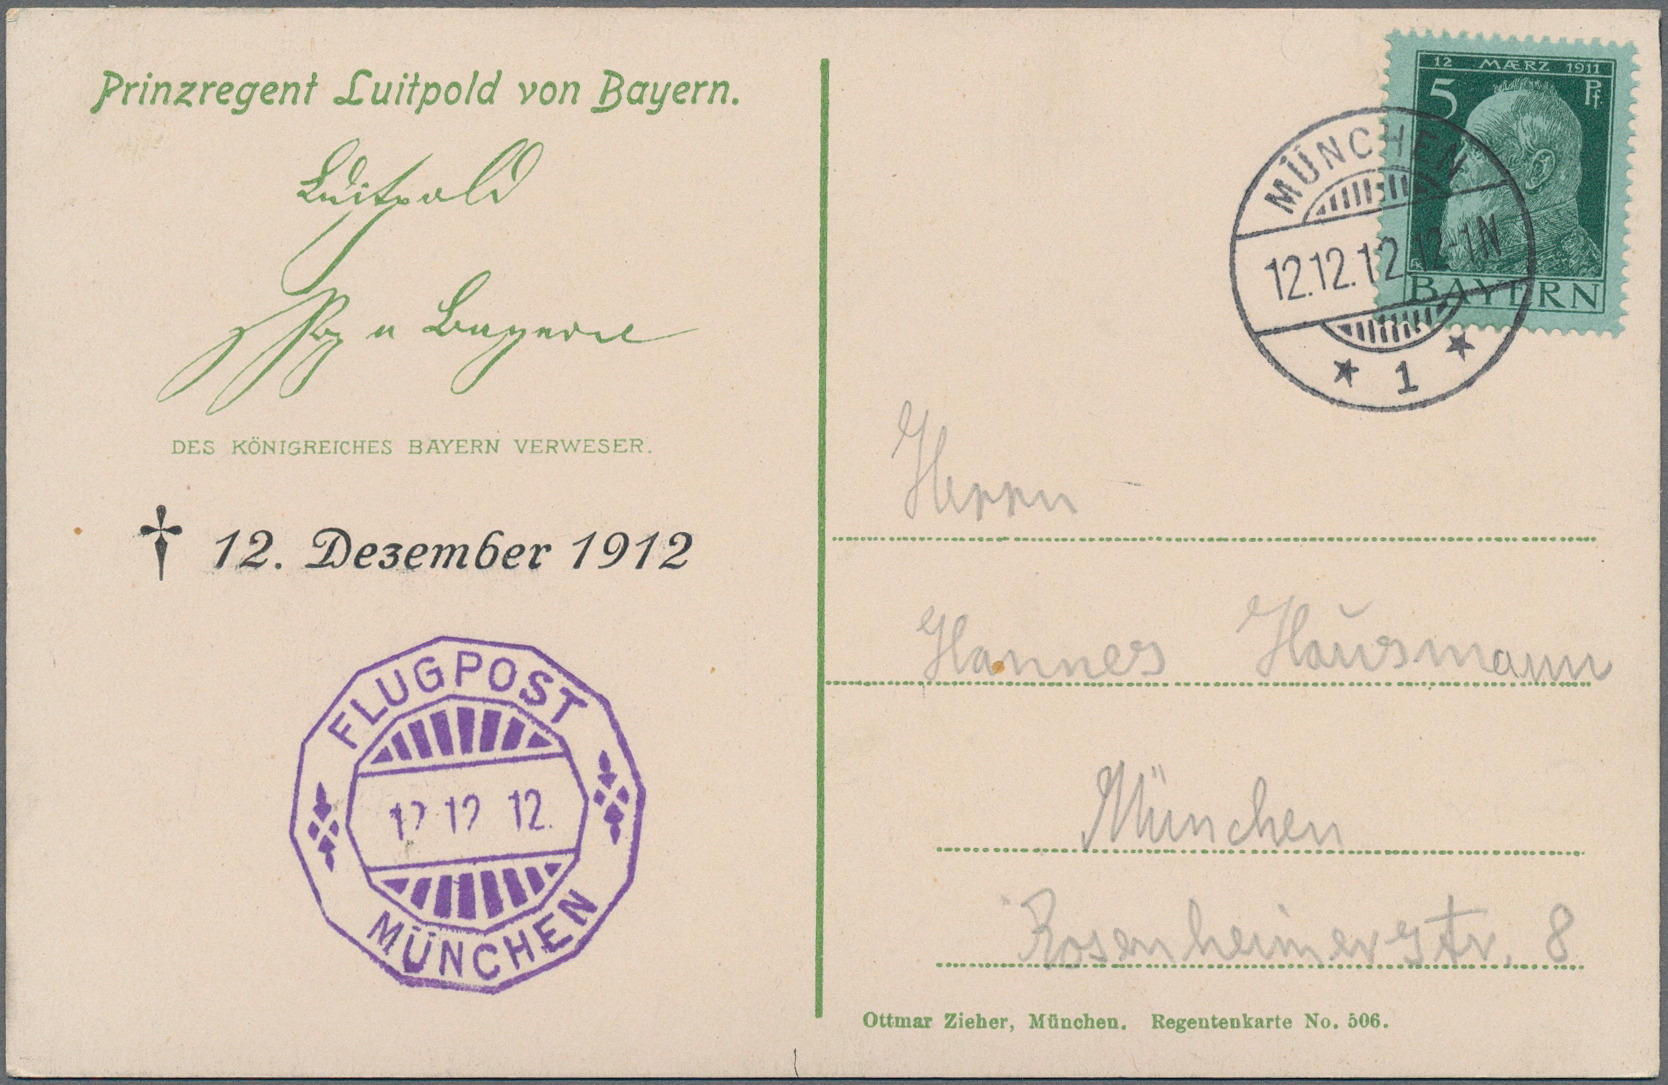 Prinzregent Luitpold von Bayern.
Luitpold
Pz v Bayern
DES KÖNIGREICHES BAYERN VERWESER.
† 12. Dezember 1912
FLUGPOST
12 12 12.
MÜNCHEN
12 MÆRZ 1911
5 Pf.
BAYERN
MÜNCHEN
12.12.12.12-1N
* 1 *
Herrn
Hannes Hausmann
München
Rosenheimerstr. 8
Ottmar Zieher, München. Regentenkarte No. 506.